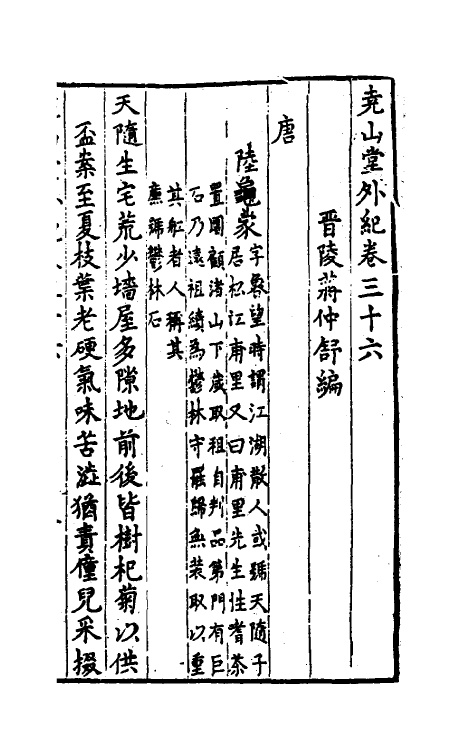 堯山堂外紀卷三十六
晉陵蔣仲舒編
唐
陸龜蒙字魯望時謂江湖散人或號天隨子
居松江甫里又曰甫里先生性耆茶
置園顧渚山下歲取租自判品第門有巨
石乃遠祖績爲鬱林守羅歸無裝取以重
其舡者人稱其
廉號鬱林石
天隨生宅荒少墻屋多隙地前後皆樹杞菊以供
盃案至夏枝葉老硬氣味苦澁猶責僮兒采掇